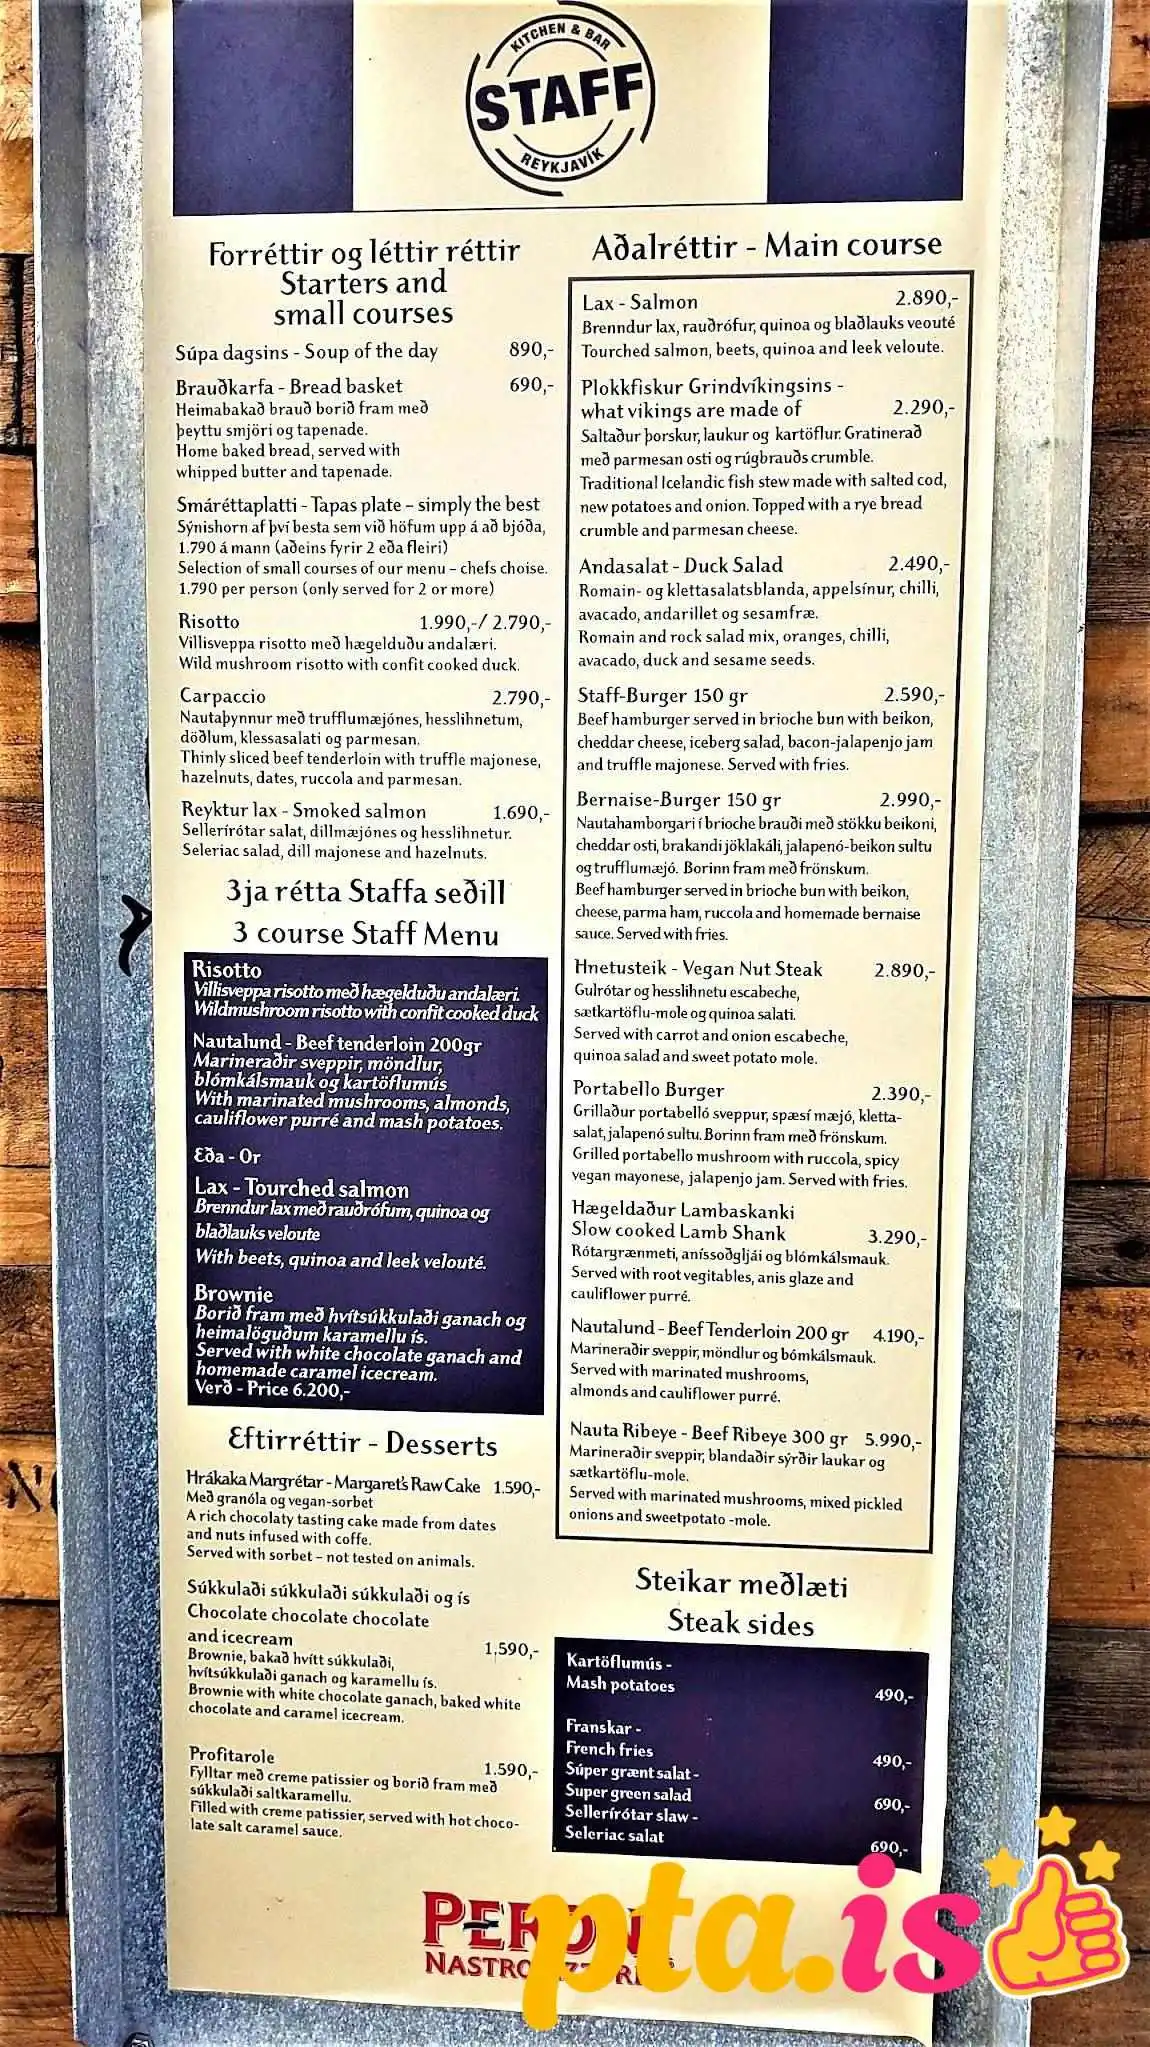 KITCHEN & BAR
STAFF
REYKJAVÍK
Forréttir og léttir réttir
Starters and
small courses
Súpa dagsins - Soup of the day 890,-
Brauðkarfa - Bread basket 690,-
Heimabakað brauð borið fram með
þeyttu smjöri og tapenade.
Home baked bread, served with
whipped butter and tapenade.
Smáréttaplatti - Tapas plate – simply the best
Sýnishorn af því besta sem við höfum upp á að bjóða,
1.790 á mann (aðeins fyrir 2 eða fleiri)
Selection of small courses of our menu – chefs choise.
1.790 per person (only served for 2 or more)
Risotto 1.990,-/ 2.790,-
Villisveppa risotto með hægelduðu andalæri.
Wild mushroom risotto with confit cooked duck.
Carpaccio 2.790,-
Nautaþynnur með trufflumæjónes, hesslihnetum,
döðlum, klessasalati og parmesan.
Thinly sliced beef tenderloin with truffle majonese,
hazelnuts, dates, ruccola and parmesan.
Reyktur lax - Smoked salmon 1.690,-
Sellerírótar salat, dillmæjónes og hesslihnetur.
Seleriac salad, dill majonese and hazelnuts.
3ja rétta Staffa seðill
3 course Staff Menu
Risotto
Villisveppa risotto með hægelduðu andalæri.
Wildmushroom risotto with confit cooked duck
Nautalund - Beef tenderloin 200gr
Marineraðir sveppir, möndlur,
blómkálsmauk og kartöflumús
With marinated mushrooms, almonds,
cauliflower purré and mash potatoes.
Eða - Or
Lax - Tourched salmon
Brenndur lax með rauðrófum, quinoa og
blaðlauks veloute
With beets, quinoa and leek velouté.
Brownie
Borið fram með hvítsúkkulaði ganach og
heimalöguðum karamellu ís.
Served with white chocolate ganach and
homemade caramel icecream.
Verð - Price 6.200,-
Eftirréttir - Desserts
Hrákaka Margrétar - Margaret's Raw Cake 1.590,-
Með granóla og vegan-sorbet
A rich chocolaty tasting cake made from dates
and nuts infused with coffe.
Served with sorbet – not tested on animals.
Súkkulaði súkkulaði súkkulaði og ís
Chocolate chocolate chocolate
and icecream 1.590,-
Brownie, bakað hvítt súkkulaði,
hvítsúkkulaði ganach og karamellu ís.
Brownie with white chocolate ganach, baked white
chocolate and caramel icecream.
Profitarole 1.590,-
Fylltar með creme patissier og borið fram með
súkkulaði saltkaramellu.
Filled with creme patissier, served with hot choco-
late salt caramel sauce.
Aðalréttir - Main course
Lax - Salmon 2.890,-
Brenndur lax, rauðrófur, quinoa og blaðlauks veouté
Tourched salmon, beets, quinoa and leek veloute.
Plokkfiskur Grindvíkingsins -
what vikings are made of 2.290,-
Saltaður þorskur, laukur og kartöflur. Gratinerað
með parmesan osti og rúgbrauðs crumble.
Traditional Icelandic fish stew made with salted cod,
new potatoes and onion. Topped with a rye bread
crumble and parmesan cheese.
Andasalat - Duck Salad 2.490,-
Romain- og klettasalatsblanda, appelsínur, chilli,
avacado, andarillet og sesamfræ.
Romain and rock salad mix, oranges, chilli,
avacado, duck and sesame seeds.
Staff-Burger 150 gr 2.590,-
Beef hamburger served in brioche bun with beikon,
cheddar cheese, iceberg salad, bacon-jalapenjo jam
and truffle majonese. Served with fries.
Bernaise-Burger 150 gr 2.990,-
Nautahamborgari í brioche brauði með stökku beikoni,
cheddar osti, brakandi jöklakáli, jalapenó-beikon sultu
og trufflumæjó. Borinn fram með frönskum.
Beef hamburger served in brioche bun with beikon,
cheese, parma ham, ruccola and homemade bernaise
sauce. Served with fries.
Hnetusteik - Vegan Nut Steak 2.890,-
Gulrótar og hesslihnetu escabeche,
sætkartöflu-mole og quinoa salati.
Served with carrot and onion escabeche,
quinoa salad and sweet potato mole.
Portabello Burger 2.390,-
Grillaður portabelló sveppur, spæsí mæjó, kletta-
salat, jalapenó sultu. Borinn fram með frönskum.
Grilled portabello mushroom with ruccola, spicy
vegan mayonese, jalapenjo jam. Served with fries.
Hægeldaður Lambaskanki
Slow cooked Lamb Shank 3.290,-
Rótargrænmeti, aníssoðgljái og blómkálsmauk.
Served with root vegitables, anis glaze and
cauliflower purré.
Nautalund - Beef Tenderloin 200 gr 4.190,-
Marineraðir sveppir, möndlur og bómkálsmauk.
Served with marinated mushrooms,
almonds and cauliflower purré.
Nauta Ribeye - Beef Ribeye 300 gr 5.990,-
Marineraðir sveppir, blandaðir sýrðir laukar og
sætkartöflu-mole.
Served with marinated mushrooms, mixed pickled
onions and sweetpotato -mole.
Steikar meðlæti
Steak sides
Kartöflumús -
Mash potatoes 490,-
Franskar -
French fries 490,-
Súper grænt salat -
Super green salad 690,-
Sellerírótar slaw -
Seleriac salat 690,-
pta.is